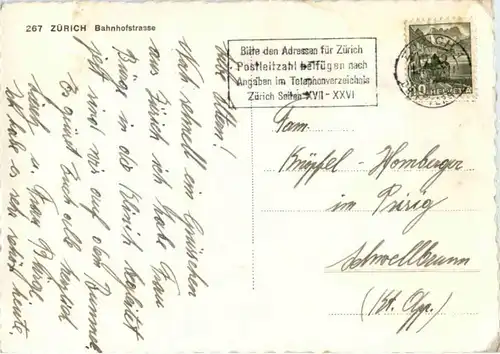 267 ZÜRICH Bahnhofstrasse
Bitte den Adressen für Zürich
Postleitzahl beifügen nach
Angaben im Telephonverzeichnis
Zürich Seiten XVII - XXVI
HELVETIA
Noch schnell ein
aus Zürich ich habe Frau
Bürge in die Klinik begleitet
jetzt sind wir auf dem Bummel
Es grüsst Euch alle herzlich
u. Frau Bürge.
heute
Fam.
Knüpfel - Homberger
im
Schwellbrunn
(Kt. App.)